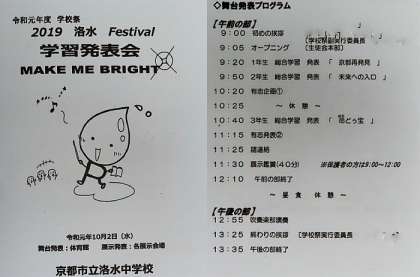 令和元年度 学校祭
2019 洛水 Festival
学習発表会
MAKE ME BRIGHT
令和元年10月2日(水)
舞台発表:体育館 展示発表:各展示会場
京都市立洛水中学校
◇舞台発表プログラム
【午前の部】
9:00 初めの挨拶 〔学校祭副実行委員長
9:05 オープニング 〔生徒会本部〕
9:20 1年生 総合学習 発表 「 京都再発見 」
9:50 2年生 総合学習 発表 「 未来への入口 」
10:20 有志企画①
10:25 ~ 休 憩 ~
10:40 3年生 総合学習 発表 「 命どぅ宝 」
11:15 有志発表②
11:25 諸連絡
11:30 展示鑑賞(40分) ※保護者の方は9:00~12:00
12:10 午前の部終了
~ 昼 食 休 憩 ~
【午後の部】
12:55 吹奏楽部演奏
13:25 終わりの挨拶 〔学校祭実行委員長
13:35 午後の部終了